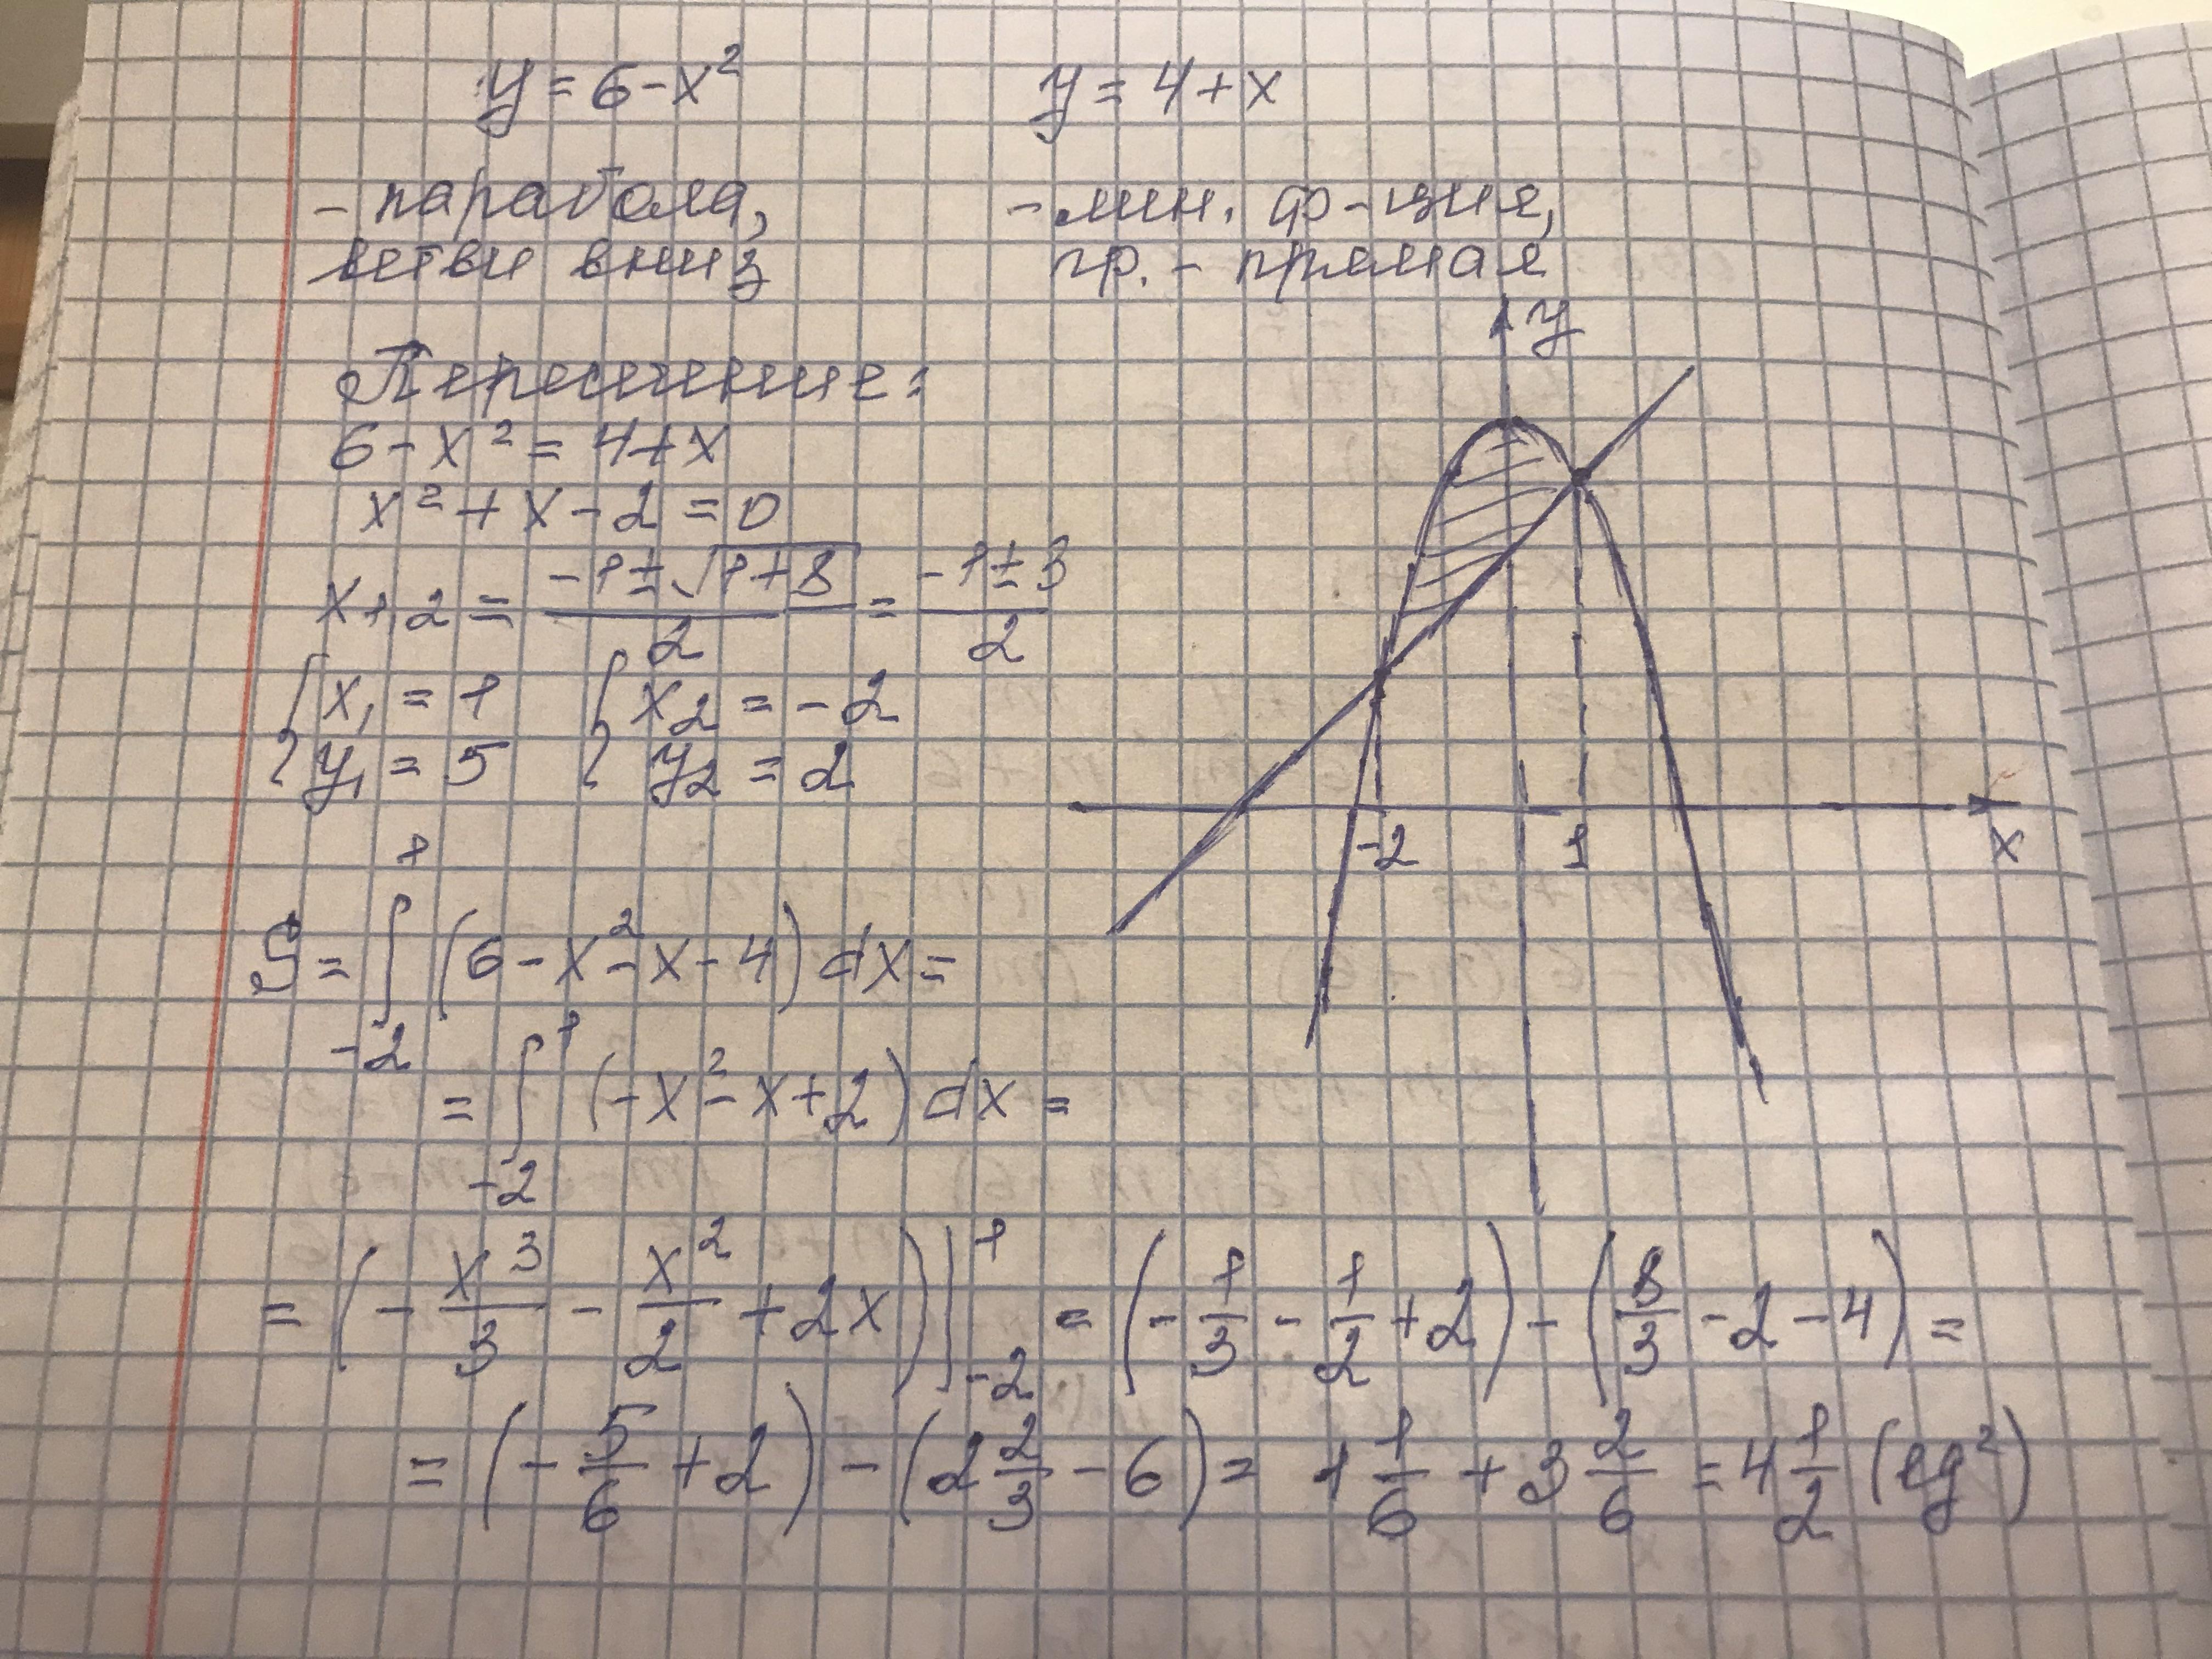 y = 6 - x² y = 4 + x
- парабола, - лин. ф-ция,
ветви вниз гр. - прямая
Пересечение:
6 - x² = 4 + x
x² + x - 2 = 0
x₁,₂ = (-1 ± √(1+8))/2 = (-1 ± 3)/2
{x₁ = 1 {x₂ = -2
{y₁ = 5 {y₂ = 2
y
-2 1 x
S = ∫₋₂¹ (6 - x² - x - 4) dx =
= ∫₋₂¹ (-x² - x + 2) dx =
= (-x³/3 - x²/2 + 2x)|₋₂¹ = (-1/3 - 1/2 + 2) - (8/3 - 2 - 4) =
= (-5/6 + 2) - (2 2/3 - 6) = 1 1/6 + 3 2/6 = 4 1/2 (ед²)